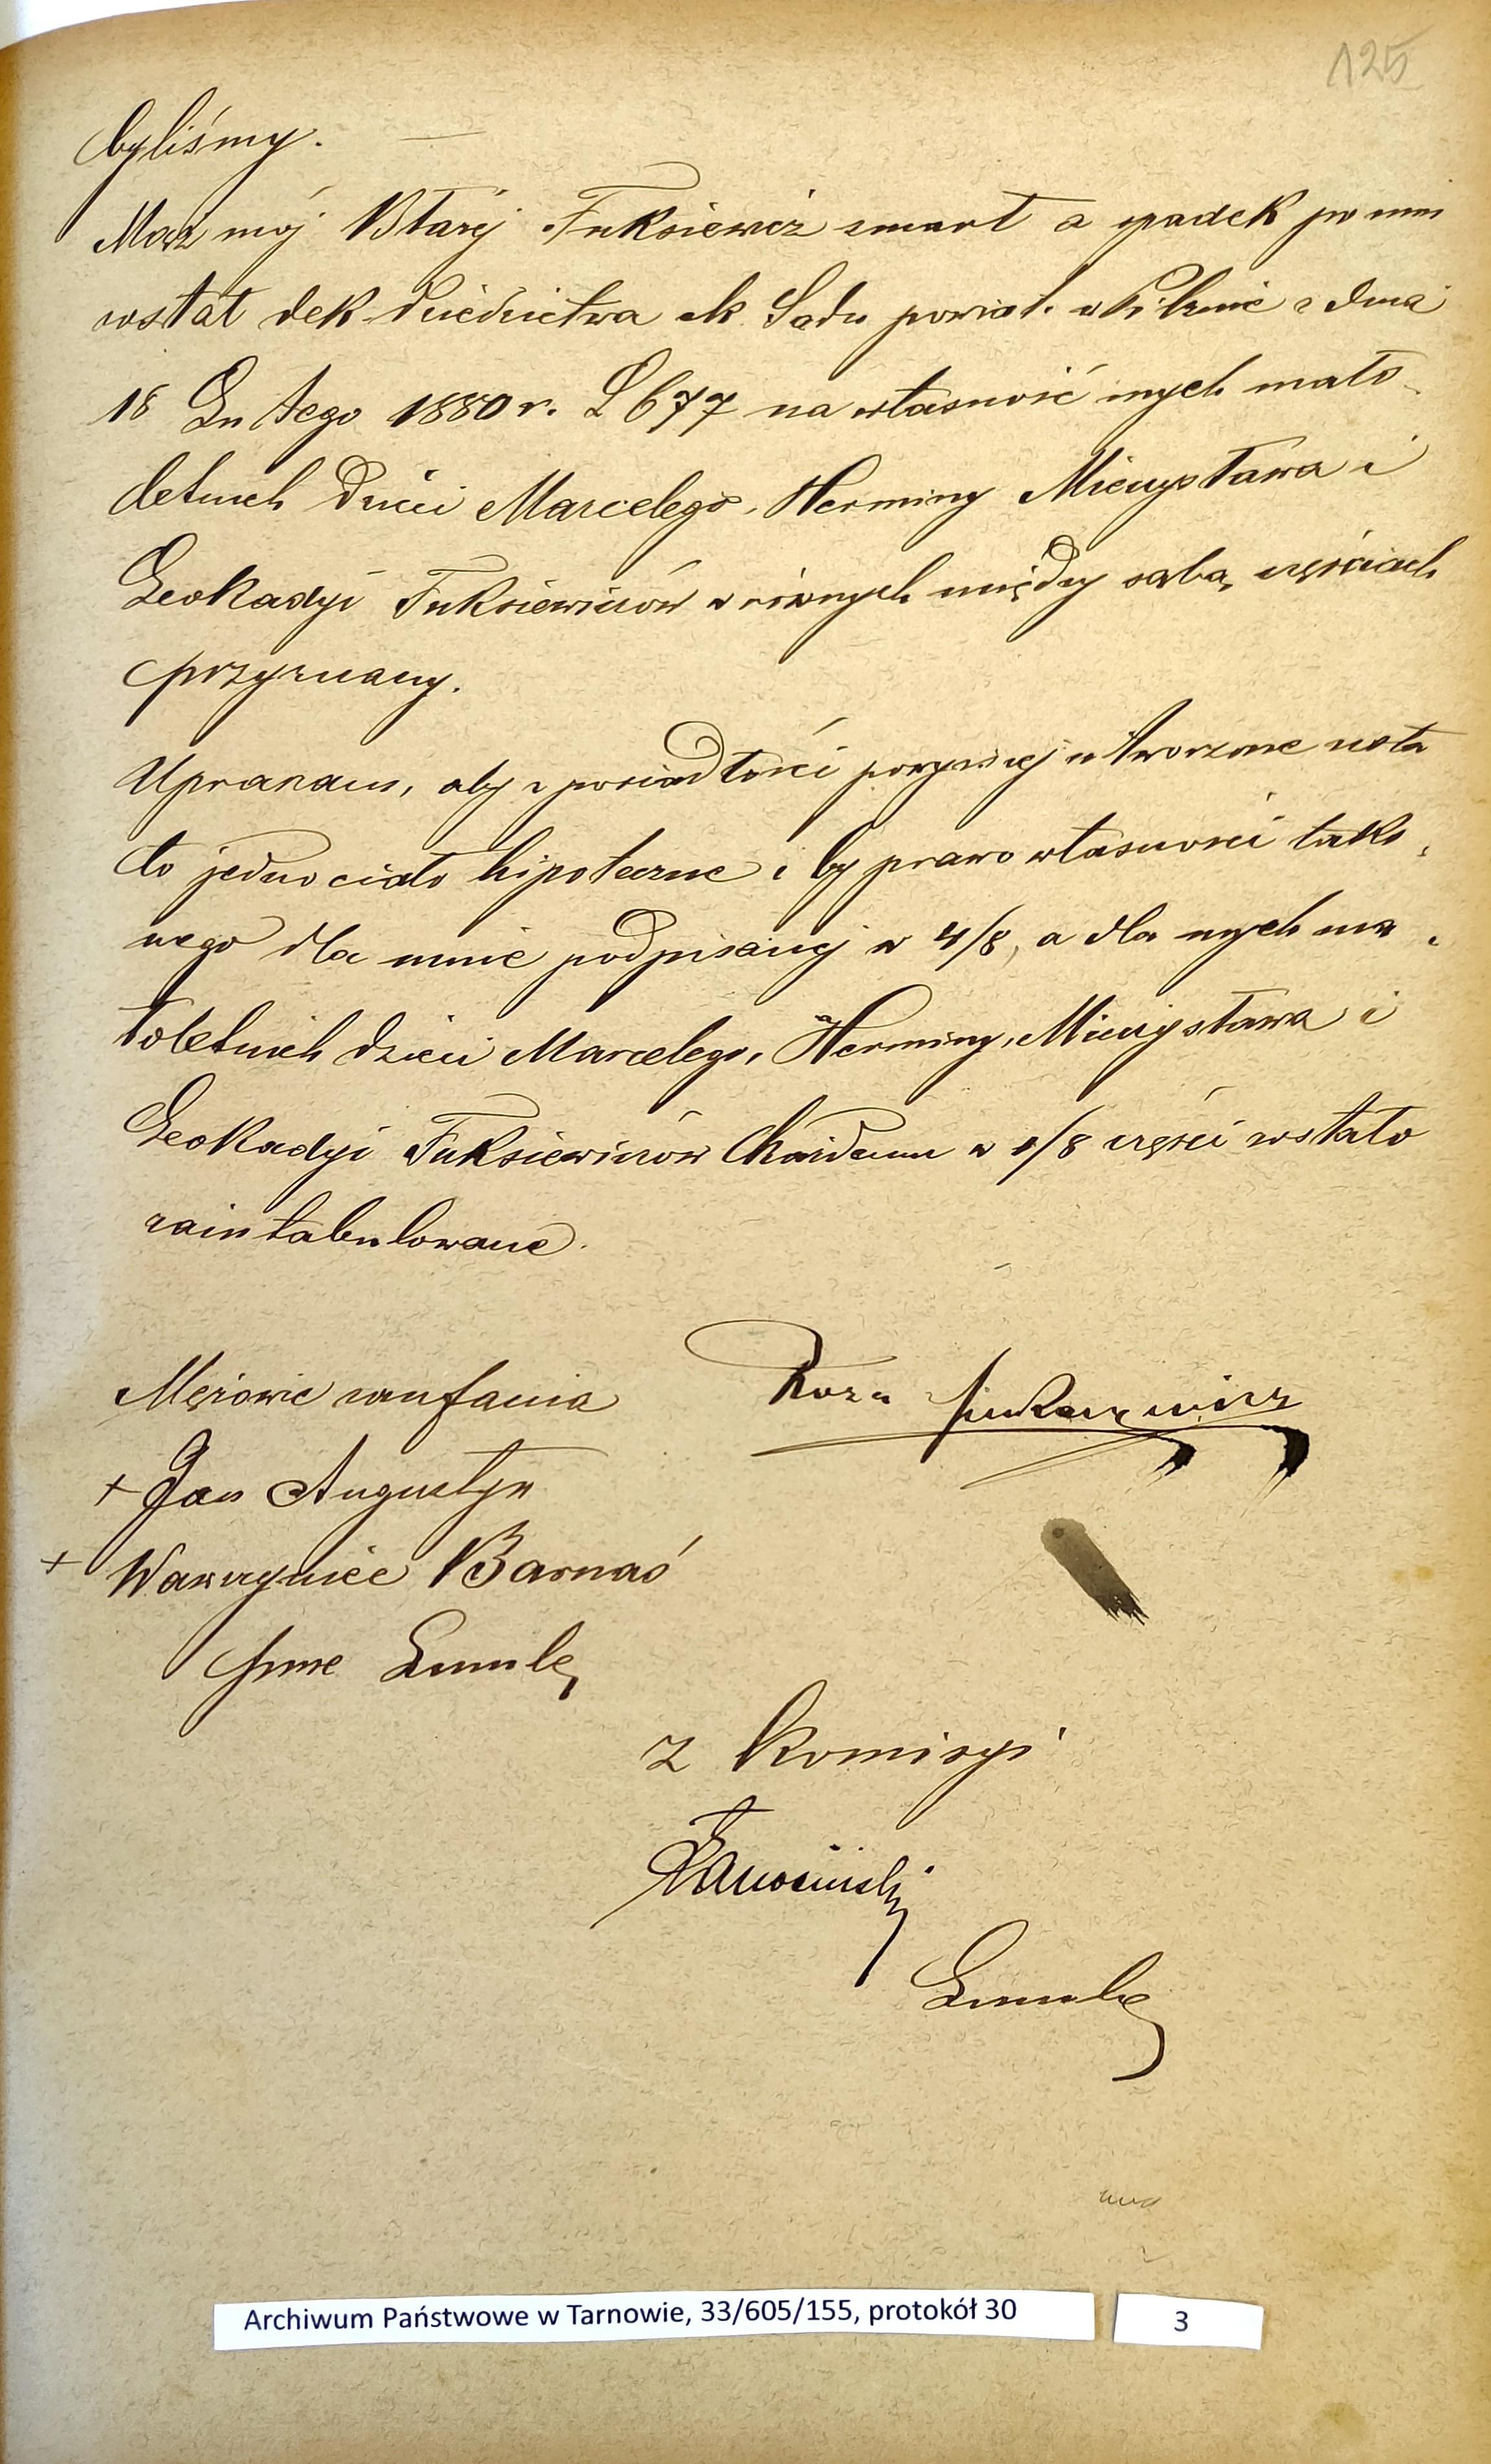 125
byliśmy.
Mąż mój Błażej Fuksiewicz zmarł a spadek po nim
został dek dziedzictwa ck. Sądu powiat. w Pilznie z dnia
18 Lutego 1880 r. L 677 na własność mych mało-
letnich dzieci Marcelego, Herminy Mieczysława i
Leokadyi Fuksiewiczów w równych między sobą częściach
przyznany.
Upraszam, aby z posiadłości powyższej utworzone zosta
ło jedno ciało hipoteczne i by prawo własności tako-
wego dla mnie podpisanej w 4/8, a dla mych ma-
łoletnich dzieci Marcelego, Herminy, Mieczysława i
Leokadyi Fuksiewiczów każdemu w 1/8 części zostało
zaintabulowane.
Mężowie zaufania
Roza
+ Jan Augustyn
+ Wawrzyniec Barnaś
z Komisyi
Archiwum Państwowe w Tarnowie, 33/605/155, protokół 30
3